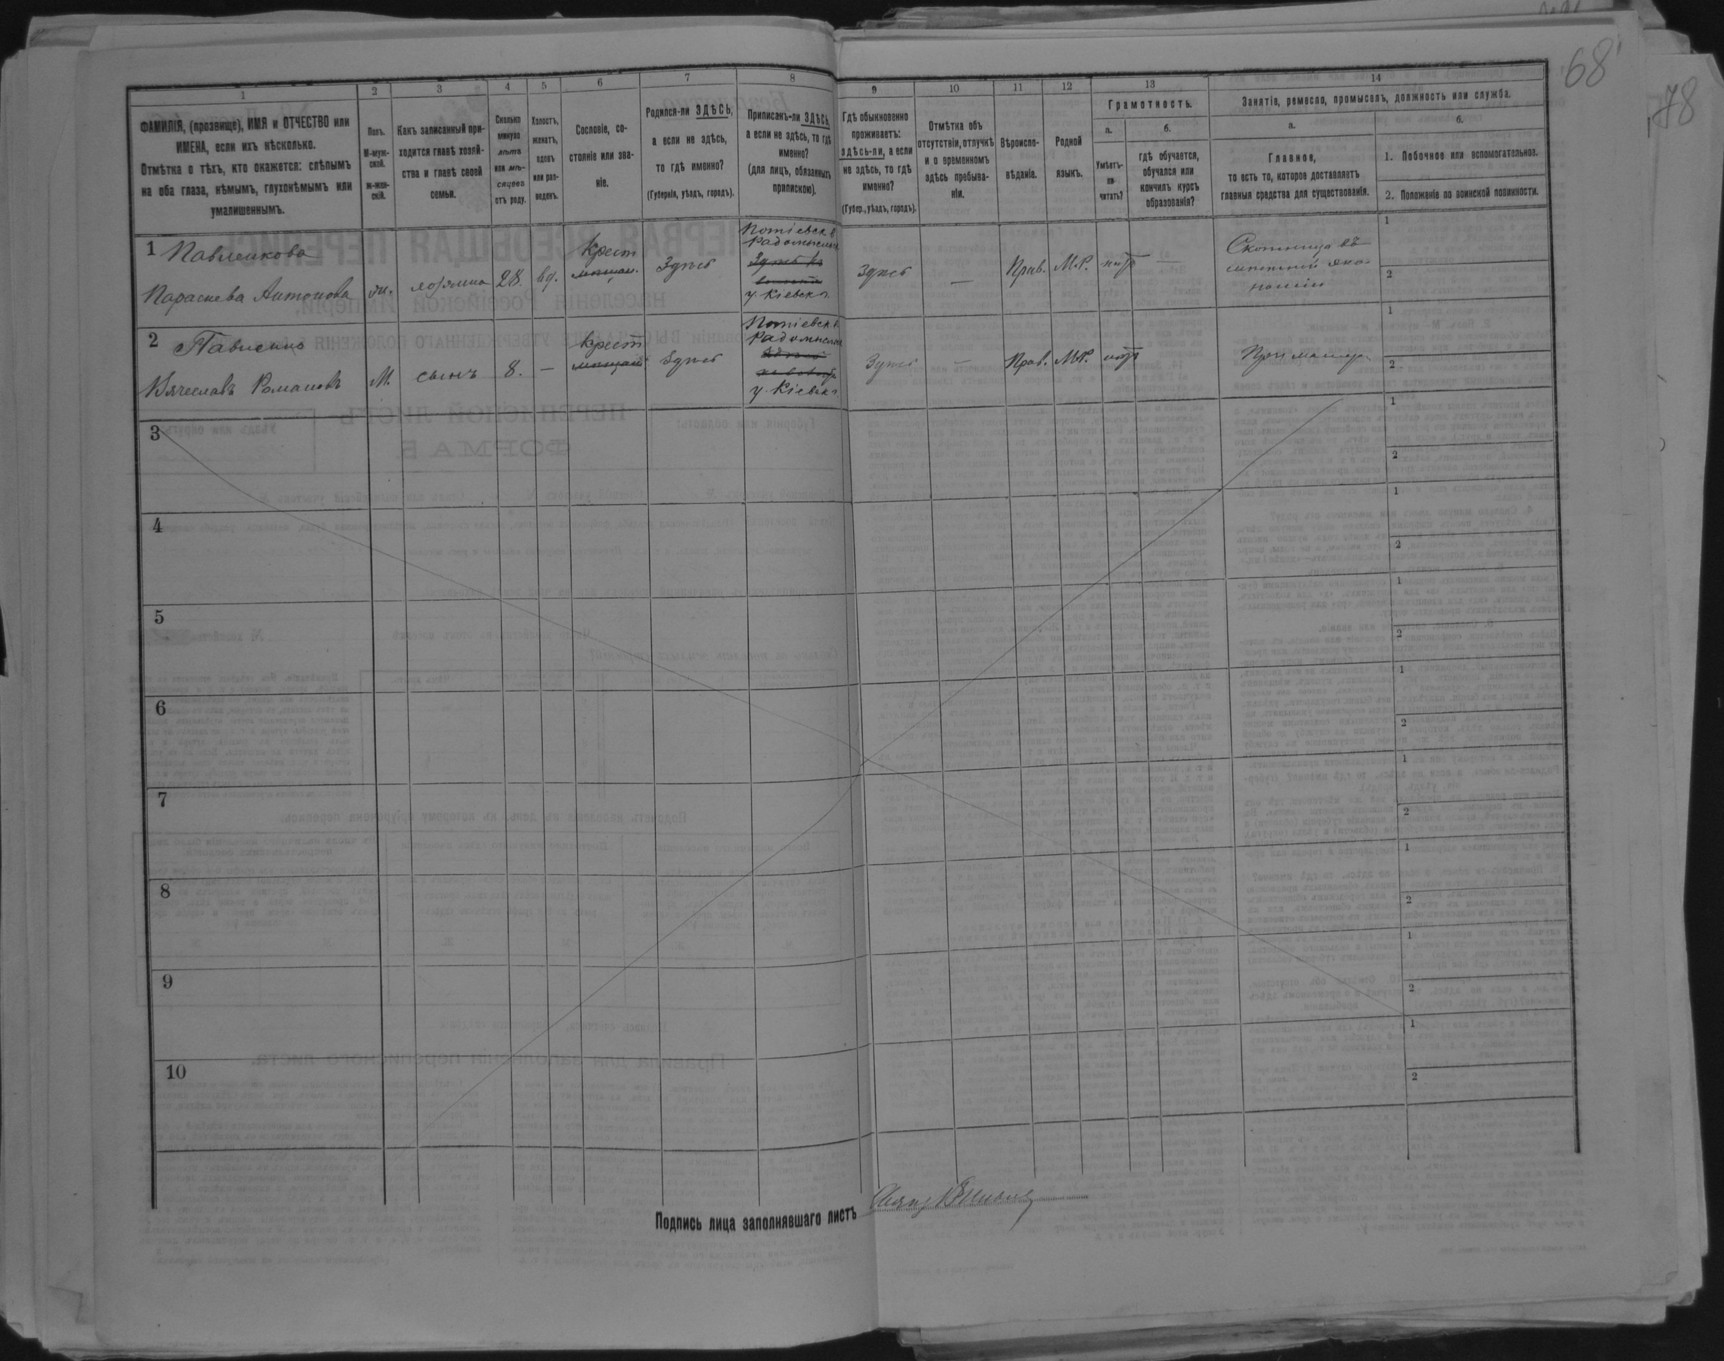 68
78
1
2
3
4
5
6
7
8
9
10
11
12
13
14
ФАМИЛІЯ, (прозвище), ИМЯ и ОТЧЕСТВО или
ИМЕНА, если ихъ нѣсколько.
Отмѣтка о тѣхъ, кто окажется: слѣпымъ
на оба глаза, нѣмымъ, глухонѣмымъ или
умалишеннымъ.
Полъ.
М-муж-
ской.
ж-жен-
скій.
Какъ записанный при-
ходится главѣ хозяй-
ства и главѣ своей
семьи.
Сколько
минуло
лѣтъ
или мѣ-
сяцевъ
отъ роду.
Холостъ,
женатъ,
вдовъ
или раз-
веденъ.
Сословіе, со-
стояніе или зва-
ніе.
Родился-ли ЗДѢСЬ,
а если не здѣсь,
то гдѣ именно?
(Губернія, уѣздъ, городъ).
Приписанъ-ли ЗДѢСЬ,
а если не здѣсь, то гдѣ
именно?
(для лицъ, обязанныхъ
припискою).
Гдѣ обыкновенно
проживаетъ:
здѣсь-ли, а если
не здѣсь, то гдѣ
именно?
(Губер., уѣздъ, городъ).
Отмѣтка объ
отсутствіи, отлучкѣ
и о временномъ
здѣсь пребыва-
ніи.
Вѣроиспо-
вѣданіе.
Родной
языкъ.
Грамотность.
а.
Умѣетъ-
ли
читать?
б.
гдѣ обучается,
обучался или
кончилъ курсъ
образованія?
Занятіе, ремесло, промыселъ, должность или служба.
а.
Главное,
то есть то, которое доставляетъ
главныя средства для существованія.
б.
1. Побочное или вспомогательное.
2. Положеніе по воинской повинности.
1 Павленкова
Параскева Антонова
ж.
хозяйка
28.
вд.
Крест
мѣщан.
Здѣсь
Потіевск в
Радомысльск
у. Кіевск.
Здѣсь
—
Прав.
М.Р.
нѣтъ
—
Скотница въ
1
2
2 Павленко
Вячеславъ Романовъ
М.
сынъ
8.
—
Крест
мѣщан.
Здѣсь
Потіевск в
Радомысльск
у. Кіевск.
Здѣсь
—
Прав.
М.Р.
нѣтъ
При матери
1
2
3
1
2
4
1
2
5
1
2
6
1
2
7
1
2
8
1
2
9
1
2
10
1
2
Подпись лица заполнявшаго листъ